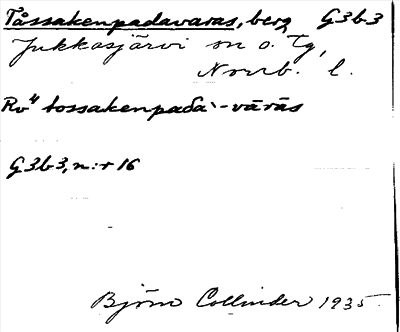 Tåssakenpadavaras, berg G3b3
Jukkasjärvi sn o. tg,
Norrb. l.
Rv" tossakenpaδa`-vārās
G3b3, n:r 16
Björn Collinder 1935.